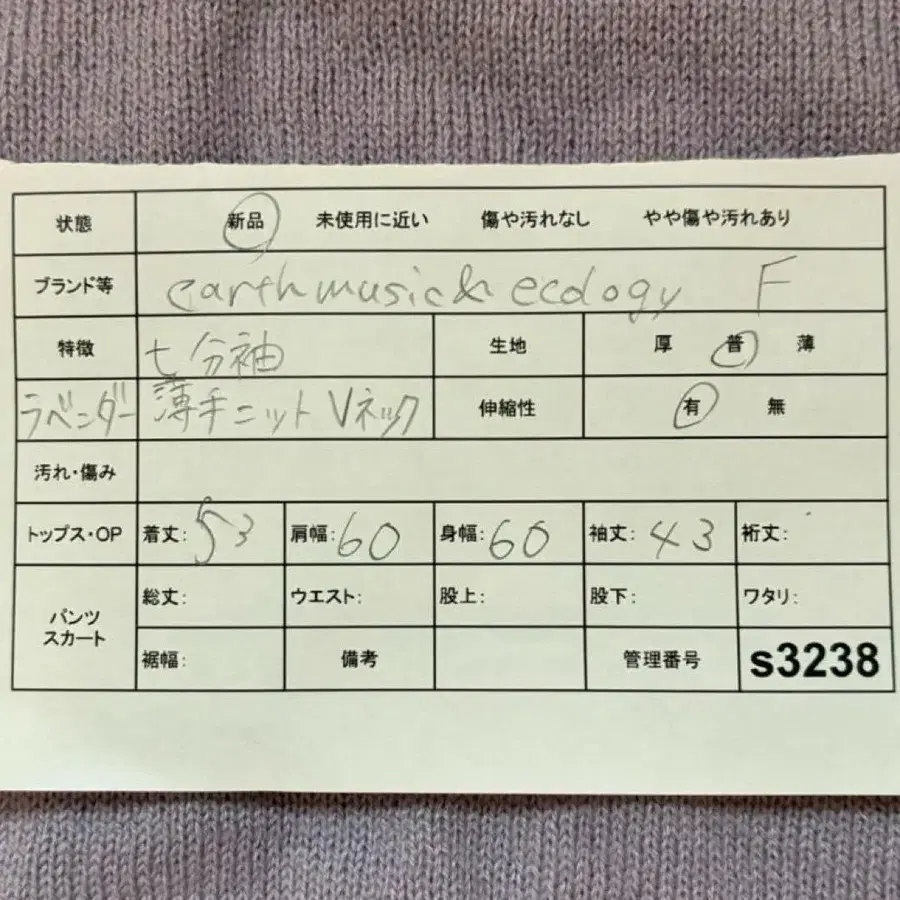 状態 新品 未使用に近い 傷や汚れなし やや傷や汚れあり
ブランド等 earth music & ecology F
特徴 七分袖 生地 厚 普 薄
ラベンダー 薄手ニット Vネック 伸縮性 有 無
汚れ・傷み
トップス・OP 着丈: 53 肩幅: 60 身幅: 60 袖丈: 43 裄丈:
パンツ スカート 総丈: ウエスト: 股上: 股下: ワタリ:
裾幅: 備考 管理番号 s3238